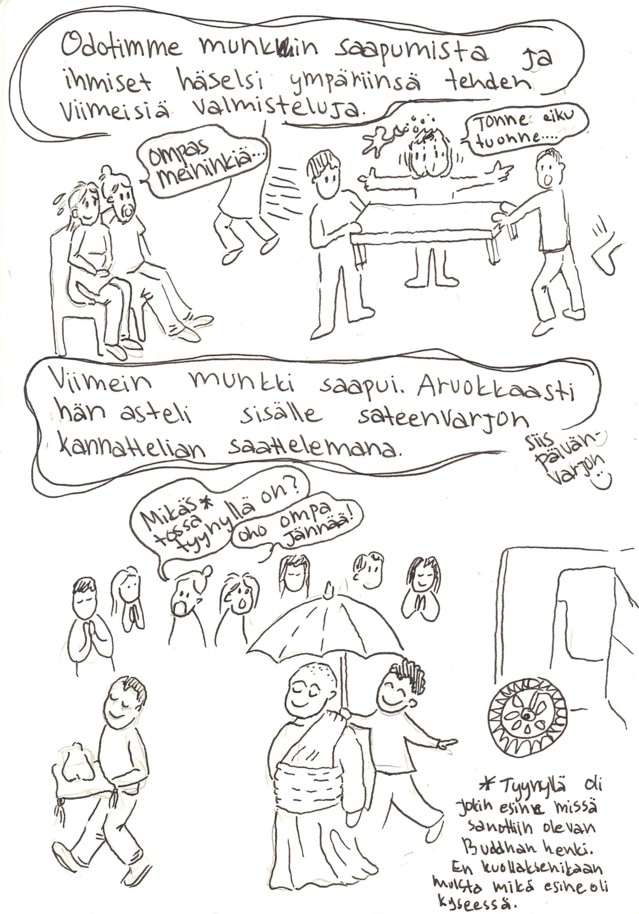 Odotimme munkkin saapumista ja
ihmiset häselsi ympäriinsä tehden
viimeisiä valmisteluja.
ompas
meininkiä...
Tonne eiku
tuonne....
Viimein munkki saapui. Arvokkaasti
hän asteli sisälle sateenvarjon
kannattelian saattelemana.
siis
päivän-
varjon
Mikäs*
tossa
tyynyllä on?
oho ompa
jännää!
* Tyynyllä oli
jokin esine missä
sanottiin olevan
Buddhan henki.
En kuollaksenikaan
muista mikä esine oli
kyseessä.